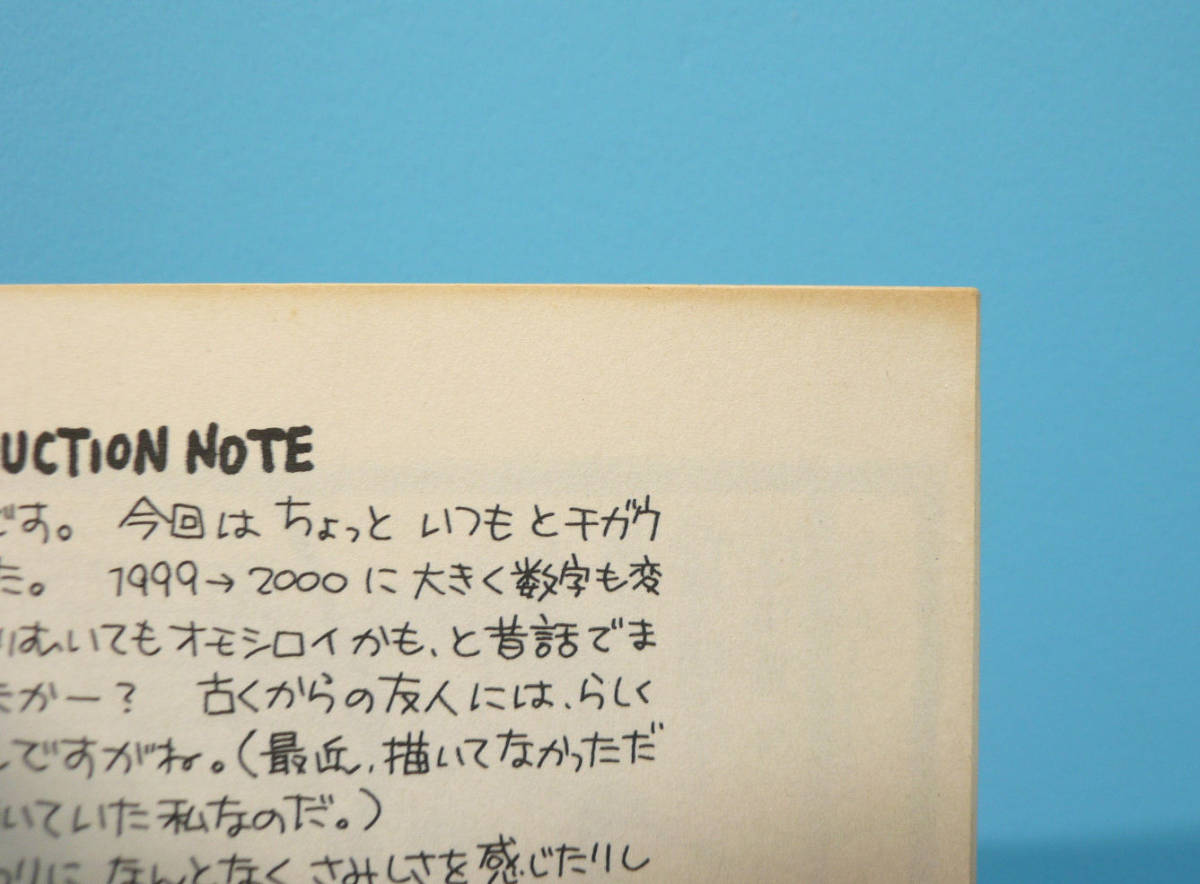 UCTION NOTE
です。 今回は ちょっと いつもとチガウ
た。 1999→2000に大きく数字も変
りむいてもオモシロイかも、と昔話でま
たかー? 古くからの友人には、らしく
しですがね。(最近、描いてなかっただ
いていた私なのだ。)
わりに なんとなく さみしさを感じたりし